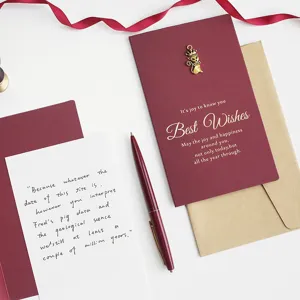 It's joy to know you
Best Wishes
May the joy and happiness
around you
not only today,but
all the year through.
"Because whatever the
date of this site is -
however you interpret
Fred's pig data and
the geological sence
at least a
couple of million years."